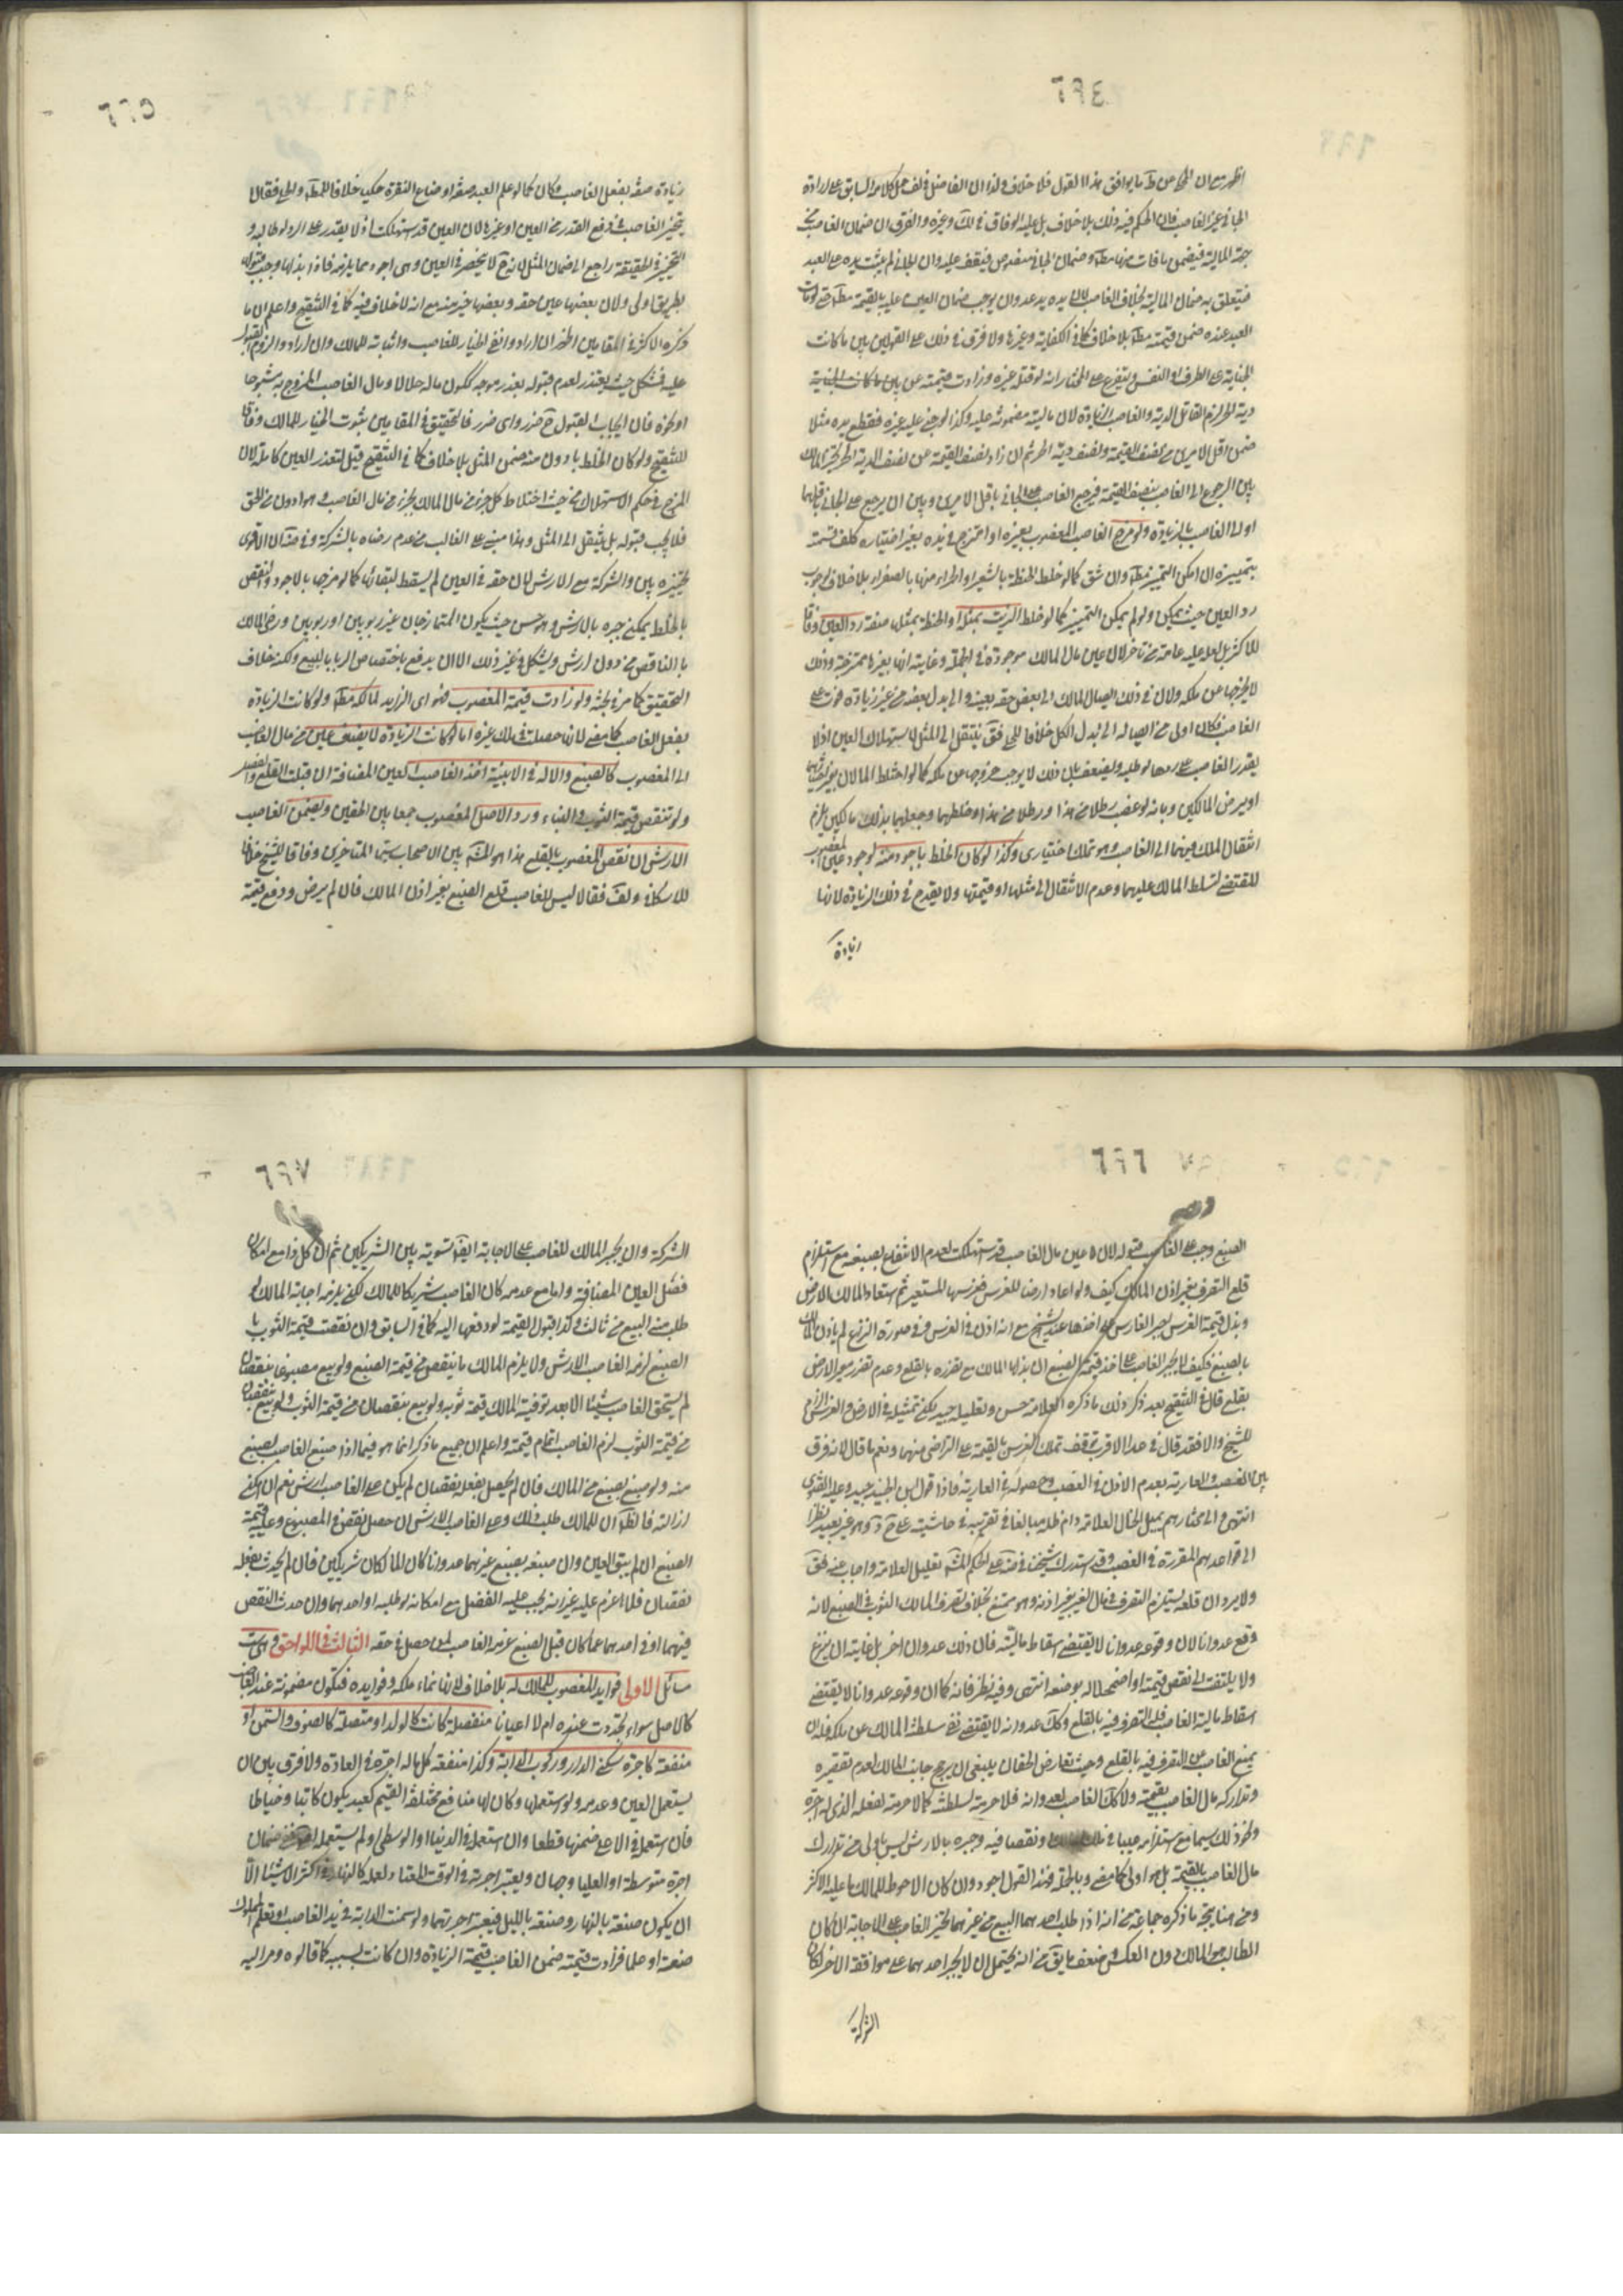 ٦٩٤
اظهر مع ان المحكى عن ط ما يوافق هذا القول فلا خلاف ولذا ان الفاضل في لف حمل كلامه السابق على ارادة
الجاني غير الغاصب فان الحكم فيه ذلك بلا خلاف بل عليه الوفاق في لك وغيره والفرق ان ضمان الغاصب من
جهة المالية فيضمن ما فات منها مط وضمان الجاني منصوص فيقف عليه وان الجاني لم يثبت يده على العبد
فيتعلق به ضمان المالية بخلاف الغاصب لان يده يد عدوان يوجب ضمان العين عليه بالقيمة مط حتى لو مات
العبد عنده ضمن قيمته مط بلا خلاف كما في الكفاية وغيرها ولا فرق في ذلك على القولين بين ما كانت
الجناية على الطرف او النفس ويتفرع على المختار انه لو قتله غيره وزادت قيمته عن
دية الحر لزم القاتل الدية والغاصب الزيادة لان ماليته مضمونة عليه وكذا لو جنى عليه غيره فقطع يده مثلا
ضمن اقل الامرين من نصف القيمة ونصف دية الحر ثم ان زاد نصف القيمة عن نصف الدية الحر تخير المالك
بين الرجوع الى الغاصب بنصف القيمة فيرجع الغاصب على الجاني باقل الامرين وبين ان يرجع على الجاني باقلهما
او الى الغاصب بالزيادة ولو مزج الغاصب المغصوب بغيره او امتزج في يده بغير اختياره كلف قسمته
بتمييزه ان امكن التمييز مط وان شق كما لو خلط الحنطة بالشعير او الحمراء منها بالصفراء بلا خلاف لوجوب
رد العين حيث يمكن ولو لم يمكن التمييز كما لو خلط الزيت بمثله او الحنطة بمثلها صفة رد العين وفاقا
للاكثر بل لعله عليه عامة من تاخر لان عين مال المالك موجودة في الجملة وغايته انها بغيرها ممتزجة وذلك
لا يخرجها عن ملكه ولان في ذلك ايصال المالك الى بعض حقه بعينه والى بدل بعضه من غير زيادة فوت على
الغاصب فكان اولى من ايصاله الى بدل الكل خلافا للحلي فق ينتقل الى المثل لاستهلاك العين اذ لا
يقدر الغاصب على ردها لو طلبه ويضعف بان ذلك لا يوجب خروجها عن ملكه كما لو اختلط المالان بغير اختيارهما
او برضى المالكين وبانه لو غصب رطلا من هذا ورطلا من هذا وخلطهما وجعلهما بذلك هالكين يلزم
انتقال الملك فيهما الى الغاصب وهو تملك اختيارى وكذا لو كان الخلط باجود منه لوجود عين المغصوب
المقتضى لتسلط المالك عليهما وعدم الانتقال الى مثلها او قيمتها ولا يقدح في ذلك الزيادة لانها
زيادة
٦٩٥
زيادة صفة بفعل الغاصب فكان كما لو علم العبد صنعة او صاغ النقرة حليا خلافا للمبسوط والحلي فقالا
يتخير الغاصب في دفع القدر من العين او غيرها لان العين قد استهلكت اذ لا يقدر على الرد لو طالبه و
التخيير في الحقيقة راجع الى ضمان المثل لانه ح لا ينحصر في العين وهي اجود مما يلزمه فاذا بذلها وجب قبوله
بطريق اولى ولان بعضها عين حقه وبعضها خير منه مع انه لا خلاف فيه كما في التنقيح واعلم ان ما
ذكره الاكثر في المقامين اظهر ان ارادوا نفي الخيار للغاصب واثباته للمالك وان ارادوا لزوم القبول
عليه فمشكل حيث يعتذر لعدم قبوله بعذر موجه ككون ماله حلالا ومال الغاصب الممزوج به مشبوها
او نحوه فان ايجاب القبول ح ضرر واى ضرر فالتحقيق في المقامين ثبوت الخيار للمالك وفاقا
للتنقيح ولو كان الخلط بادون منه ضمن المثل بلا خلاف كما في التنقيح قيل لتعذر العين كاملة لان
المزج في حكم الاستهلاك من حيث اختلاط كل جزء من مال المالك بجزء من مال الغاصب وهو ادون من الحق
فلا يجب قبوله بل ينتقل الى المثل وهذا مبني على الغالب من عدم رضاه بالشركة وفي ضة ان الاقوى
تخييره بين والشركة مع الارش لان حقه في العين لم يسقط لبقائها كما لو مزجها بالاجود والنقص
بالخلط يمكن جبره بالارش وهو حسن حيث يكون الممتزجان غير ربويين او ربويين ورضى المالك
بالناقص من دون ارش ويشكل في غير ذلك الا ان يدفع باختصاص الربا بالبيع ولكنه خلاف
التحقيق كما مر في بحثه ولو زادت قيمة المغصوب فهو اى الزايد لمالكه مط ولو كانت الزيادة
بفعل الغاصب كما مضى لانها حصلت في ملك غيره اما لو كانت الزيادة لا يضف عين من مال الغاصب
الى المغصوب كالصبغ والآلة في الابنية اخذ الغاصب العين المضافة ان قبلت القلع والفصل
ولو تنقص قيمة الثوب والبناء ورد الاصل المغصوب جمعا بين الحقين ويضمن الغاصب
الارش ان نقص المغصوب بالقلع هذا هو المشهور بين الاصحاب سيما المتاخرين وفاقا للشيخ خلافا
للاسكافى ولف فقالا ليس للغاصب قلع الصبغ بغير اذن المالك فان لم يرض ودفع قيمة
٦٩٦
الصبغ وجب على الغاصب قبوله لان عين مال الغاصب قد استهلكت لعدم الانتفاع بصبغه مع استلزام
قلع التصرف بغير اذن المالك كيف ولو اعار ارضا للغرس فغرسها المستعير ثم استعاد المالك الارض
وبذل قيمة الغرس يجبر الغارس على اخذها عند الشيخ مع انه اذن في الغرس وفي صورة النزاع لم ياذن المالك
بالصبغ فكيف لا يجبر الغاصب على اخذ قيمة الصبغ ان بذلها المالك مع تضرره بالقلع وعدم تضرر معير الارض
بقلع قال في التنقيح بعد ذكر ذلك ما ذكره العلامة حسن وتعليله جيد لكن تمثيله في الارض والغرس الزام
للشيخ والا فقد قال في عد الاقرب توقف تملك الغرس بالقيمة على التراضي منهما ونعم ما قال لانه فرق
بين الغصب والعارية بعدم الاذن في الغصب وحصوله في العارية فاذا قول ابن الجنيد جيد وعليه الفتوى
انتهى والى مختارهم يميل الخال العلامة دام ظله مبالغا في تقريبه في حاشيته على ح د وهو غير بعيد نظرا
الى قواعدهم المقررة في الغصب وقد استدرك شيخنا في ضة على الحكم المشهور تعليل العلامة واجاب عنه فق
ولا يرد ان قلعه يستلزم التصرف في مال الغير بغير اذنه وهو ممتنع بخلاف تصرف المالك الثوب في الصبغ لانه
وقع عدوانا لان وقوعه عدوانا لا يقتضى اسقاط ماليته فان ذلك عدوان اخر بل غايته ان ينزع
ولا يلتفت الى نقص قيمته او اضمحلاله بوضعه انتهى وفيه نظر فانه كما ان وقوعه عدوانا لا يقتضى
اسقاط مالية الغاصب فله التصرف فيه بالقلع وكك عدوانه لا يقتضى نفي سلطنة المالك عن ملكه فله ان
يمنع الغاصب عن التصرف فيه بالقلع وحيث تعارض الحقان ينبغي ان يرجح جانب المالك لعدم تقصيره
وتداركه مال الغاصب بقيمته ولا كك الغاصب لعدوانه فلا حرمة لسلطنته كما لا حرمة لفعله الذي له اجرة
ونحو ذلك سيما مع استلزامه عيبا في ونقصا فيه وجبره بالارش ليس باولى من تدارك
مال الغاصب بالقيمة بل هو اولى كما مضى وبالجملة فهذا القول اجود وان كان الاحوط للمالك ما عليه الاكثر
ومن هنا يتجه ما ذكره جماعة من انه اذا طلب احدهما البيع من غيرهما يجبر الغاصب على الاجابة ان كان
الطالب هو المالك دون العكس وضعف ما يق من انه يحتمل ان لا يجبر احدهما على موافقة الاخر لمكان
الشركة
٦٩٧
الشركة وان يجبر المالك للغاصب على الاجابة ايضا تسوية بين الشريكين ثم ان كل ذا مع امكان
فصل العين المضافة واما مع عدمه كان الغاصب شريكا للمالك لكن يلزمه اجابة المالك لو
طلب منه البيع من ثالث وكذا قبول القيمة لو دفعها اليه كما في السابق وان نقصت قيمة الثوب با
الصبغ لزمه الغاصب الارش ولا يلزم المالك ما ينقص من قيمة الصبغ ولو بيع مصبوغا بنقصان
لم يستحق الغاصب شيئا الا بعد توفية المالك قيمة ثوبه ولو بيع بنقصان من قيمة الثوب
من قيمة الثوب لزم الغاصب اتمام قيمته واعلم ان جميع ما ذكر انما هو فيما اذا صبغ الغاصب بصبغ
منه ولو صبغ بصبغ من المالك فان لم يحصل بفعله نقصان لم يكن على الغاصب ارش نعم ان امكن
ازالته فالظ ان للمالك طلب ذلك وعلى الغاصب الارش ان حصل نقص في المصبوغ وعليه قيمة
الصبغ ان لم يبق العين وان صبغه بصبغ غيرهما عدوانا كان المالكان شريكين فان لم يحدث بفعله
نقصان فلا غرم عليه غير انه يجب عليه الفصل مع امكانه لو طلبه او احدهما وان حدث النقص
فيهما او في احدهما عما كان قبل الصبغ غرمه الغاصب لمن حصل في حقه الثالث في اللواحق وهي ست
مسائل الاولى فوايد المغصوب للمالك له بلا خلاف لانها نماء ملكه وفوايده فتكون مضمونة عند الغاصب
كالاصل سواء تجددت عنده ام لا اعيانا منفصلة كانت كالولد او متصلة كالصوف والسمن او
منفعة كاجرة سكنى الدار وركوب الدابة وكذا منفعة كل ما له اجرة في العادة ولا فرق بين ان
يستعمل العين وعدمه ولو استعملها وكان لها منافع مختلفة القيم كعبد يكون كاتبا وخياطا
فان استعمل في الاعلى ضمنها قطعا وان استعمل في الدنيا او الوسطى او لم يستعمله ففي ضمان
اجرة متوسطة او العليا وجهان ويعتبر اجرته في الوقت المعتاد لعمله كالنهار في اكثر الاشياء الا
ان يكون صنعة بالنهار وصنعة بالليل فيعتبر اجرتهما ولو سمنت الدابة في يد الغاصب او تعلم المملوك
صنعة او علما فزادت قيمته ضمن الغاصب قيمة الزيادة وان كانت بسببه كما قالوه ومر اليه